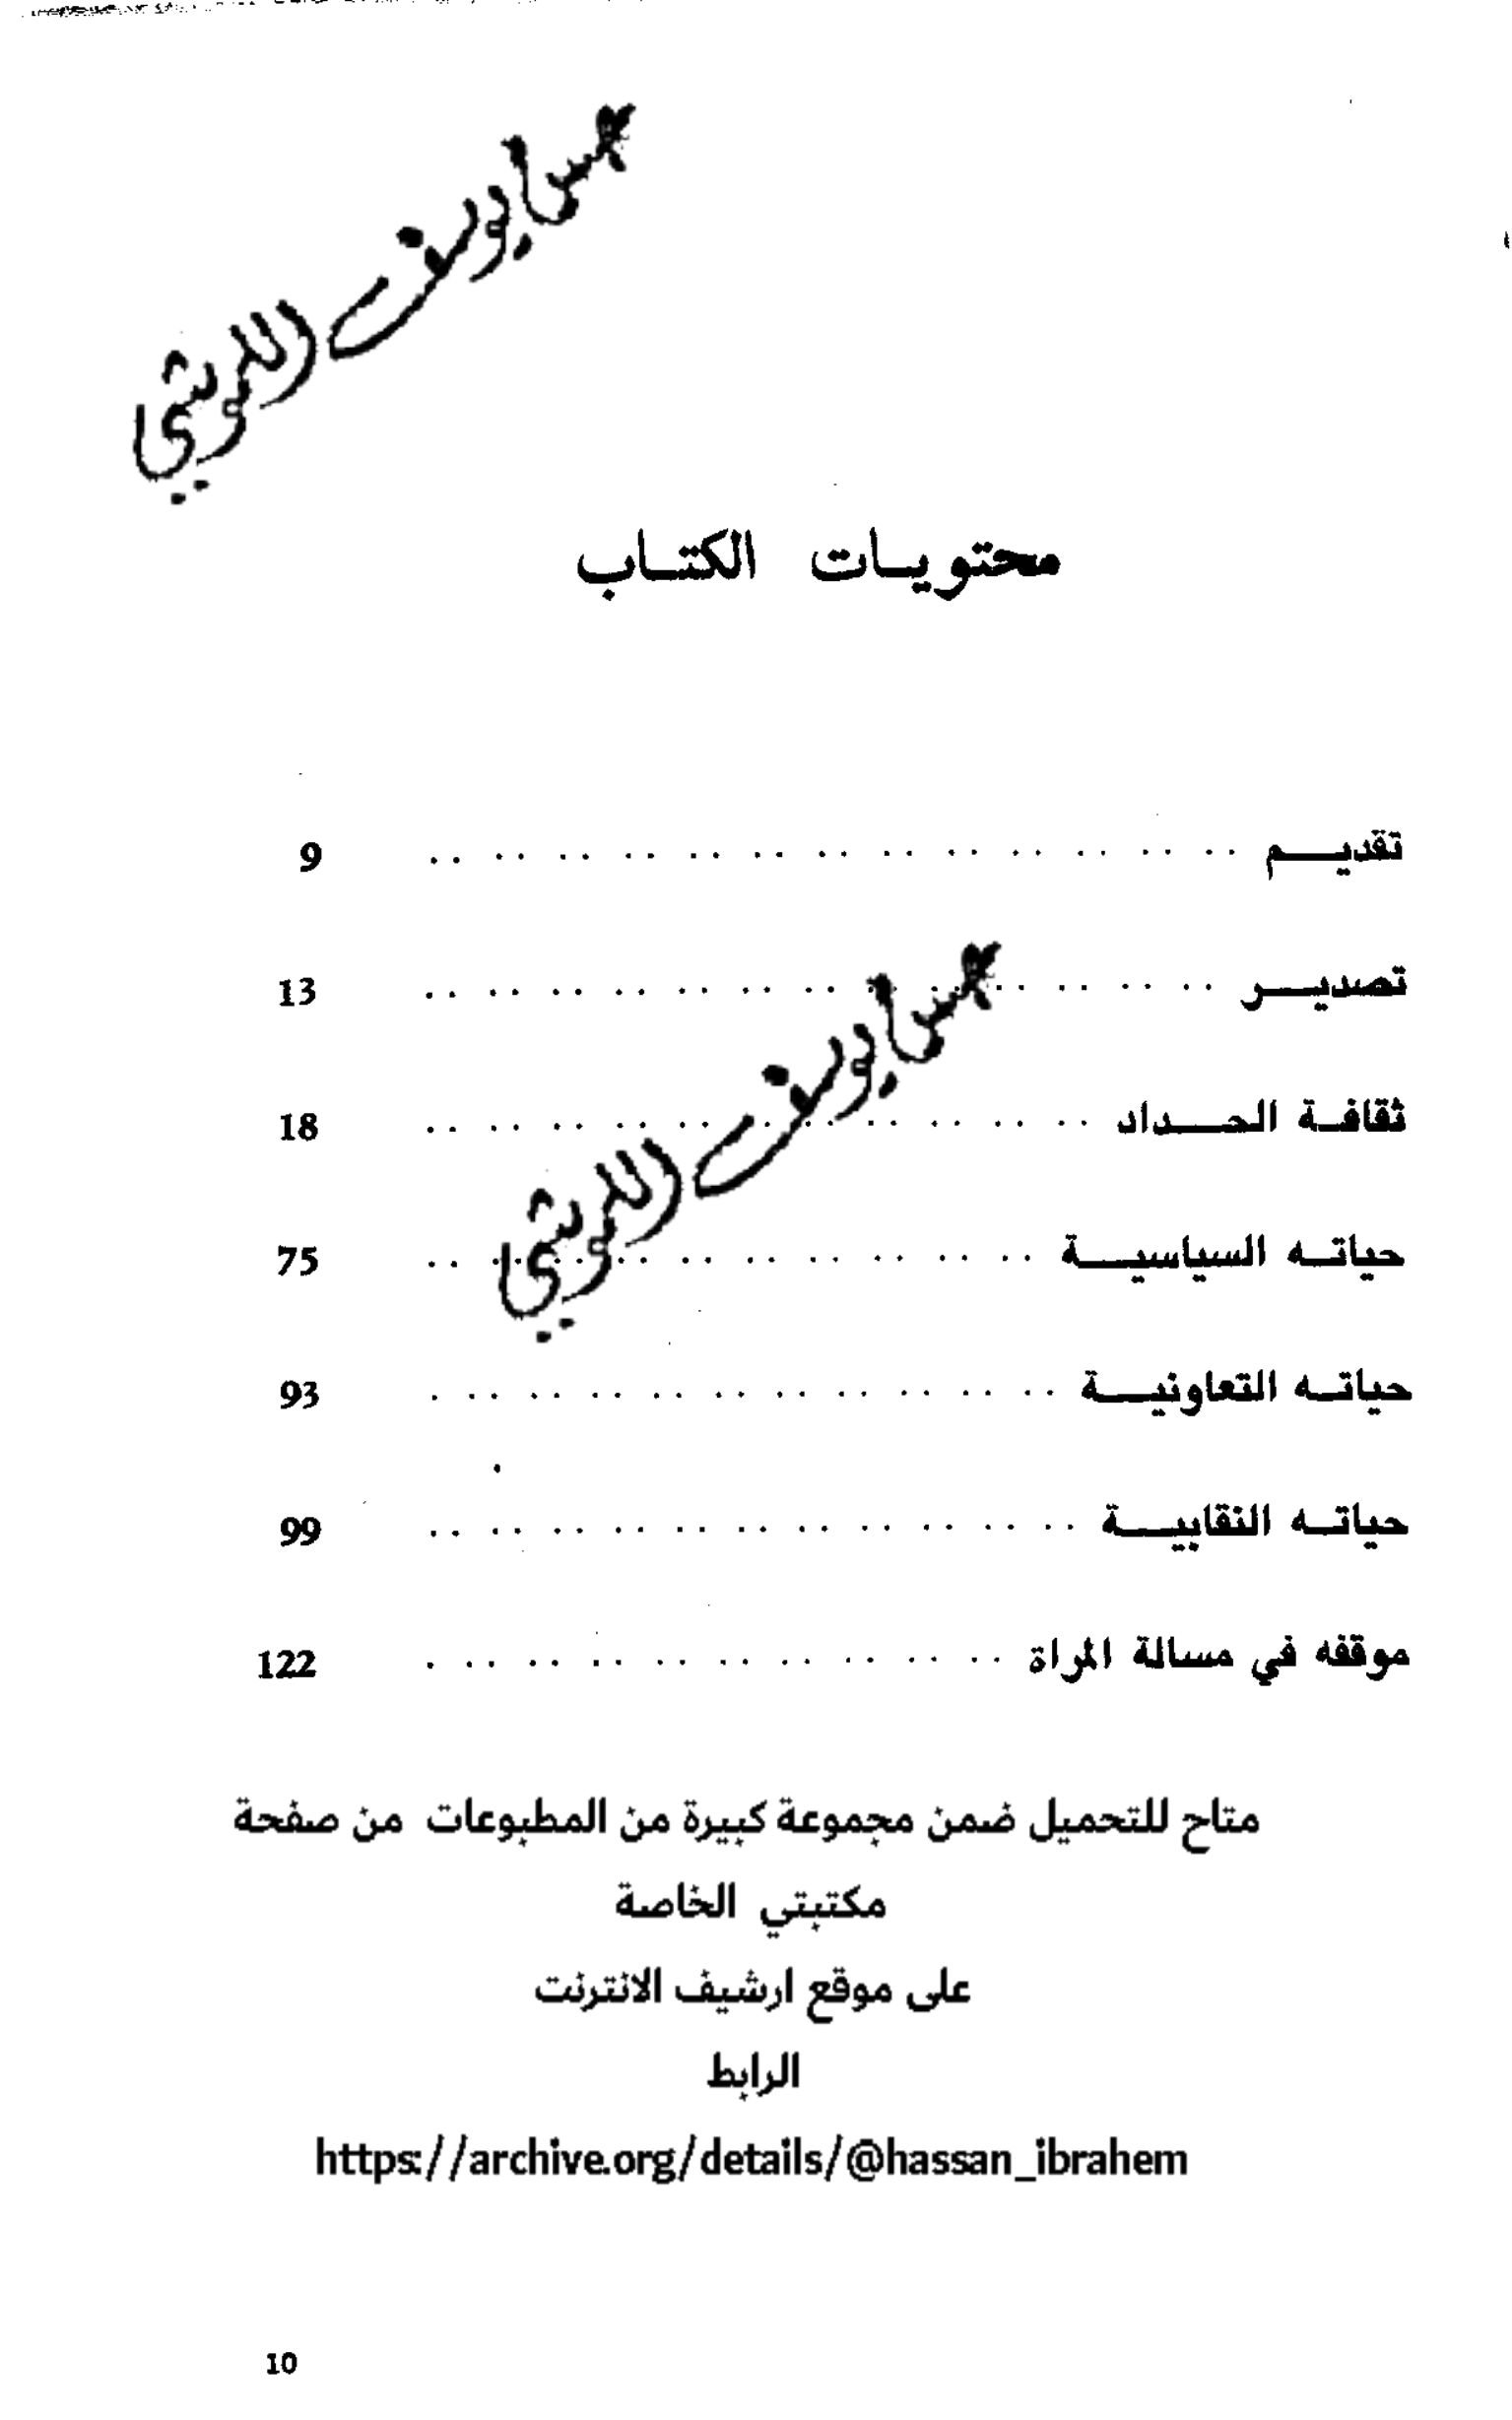 محتويات الكتاب
تقديم . . . . . . . . . . . . . . . . . . . . . . . . . . 9
تصدير . . . . . . . . . . . . . . . . . . . . . . . . . 13
ثقافة الحداد . . . . . . . . . . . . . . . . . . . . . 18
حياته السياسية . . . . . . . . . . . . . . . . . . . 75
حياته التعاونية . . . . . . . . . . . . . . . . . . . . 93
حياته النقابية . . . . . . . . . . . . . . . . . . . . . 99
موقفه في مسالة المراة . . . . . . . . . . . . . . . . . . 122
متاح للتحميل ضمن مجموعة كبيرة من المطبوعات من صفحة
مكتبتي الخاصة
على موقع ارشيف الانترنت
الرابط
https://archive.org/details/@hassan_ibrahem
10